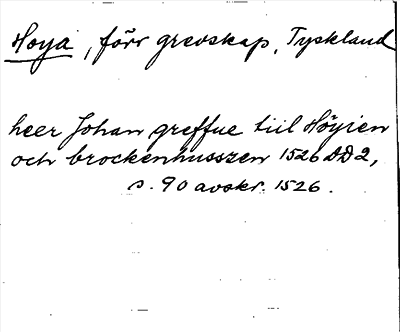 Hoya, förr grevskap, Tyskland
heer Johan greffue tiil Höyien
och brockenhusszen 1526 DD2,
s. 90 avskr. 1526.